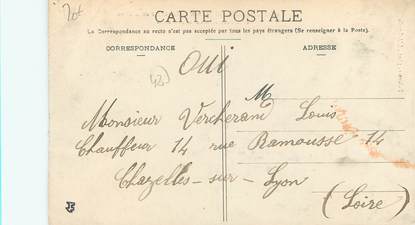 20f
CARTE POSTALE
La Correspondance au recto n'est pas acceptée par tous les pays étrangers (Se renseigner à la Poste).
CORRESPONDANCE
ADRESSE
(42)
Oui
M
Monsieur Vercherand Louis
Chauffeur 14 rue Ramousse 14
Chazelles-sur-Lyon
(Loire)